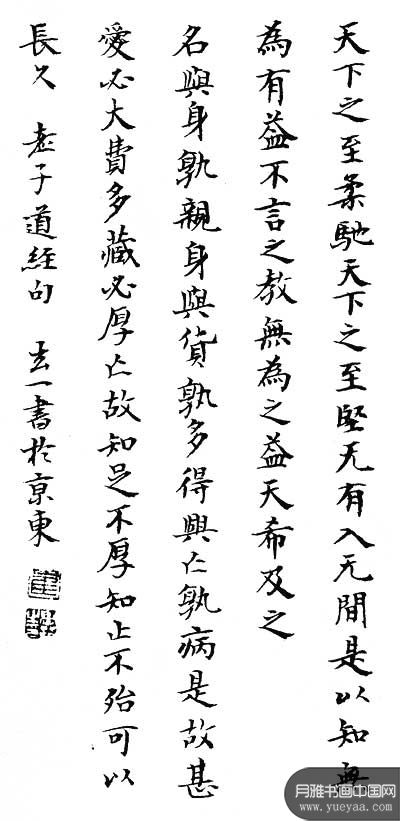 天下之至柔馳天下之至堅无有入无間是以知無
為有益不言之教無為之益天希及之
名與身孰親身與貨孰多得與亡孰病是故甚
愛必大費多藏必厚亡故知足不厚知止不殆可以
長久 老子道經句 玄一書於京東
月雅书画中国网
www.yueyaa.com